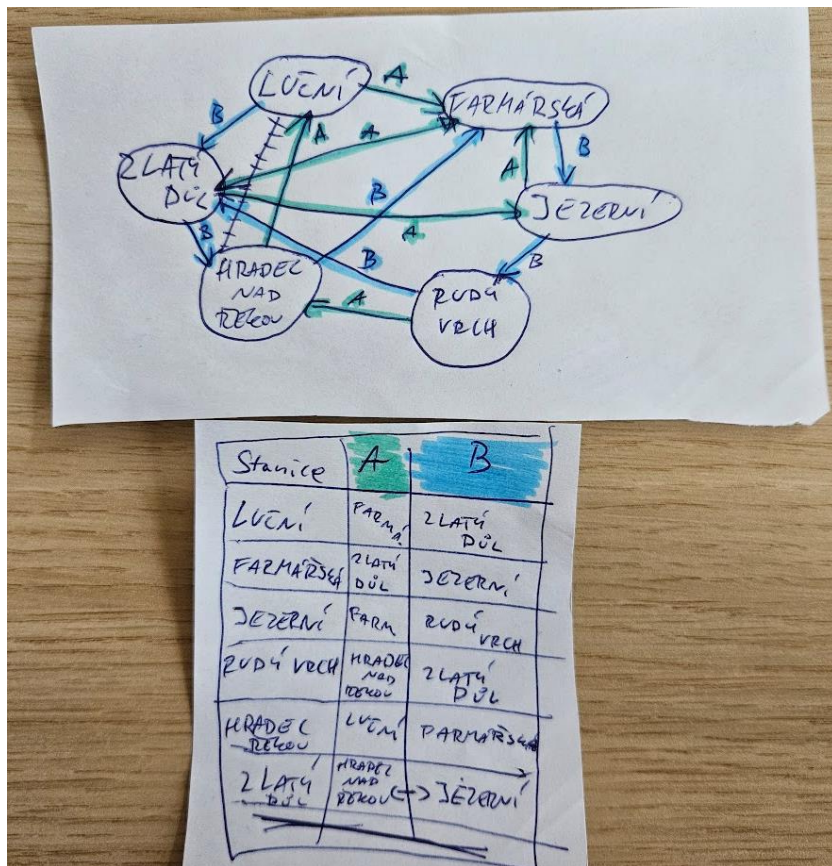 LUČNÍ
A
FARMÁŘSKÁ
B
A
A
B
ZLATÝ
DŮL
A
B
JEZERNÍ
A
B
B
B
HRADEC
NAD
ŘEKOU
A
RUDÝ
VRCH
Stanice A B
LUČNÍ FARMÁ. ZLATÝ
DŮL
FARMÁŘSKÁ ZLATÝ
DŮL JEZERNÍ
JEZERNÍ FARM RUDÝ
VRCH
RUDÝ VRCH HRADEC
NAD
ŘEKOU ZLATÝ
DŮL
HRADEC
ŘEKOU LUČNÍ FARMÁŘSKÁ
ZLATÝ
DŮL HRADEC
NAD
ŘEKOU <-> JEZERNÍ